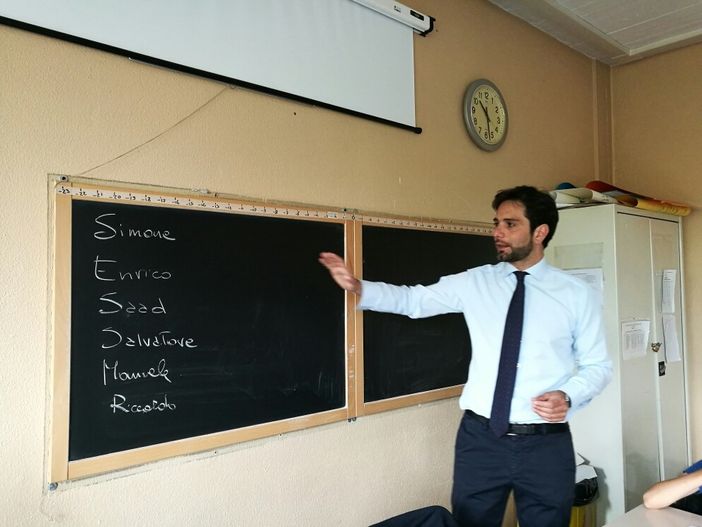 Simone
Enrico
Saad
Salvatore
Manuele
Riccardo